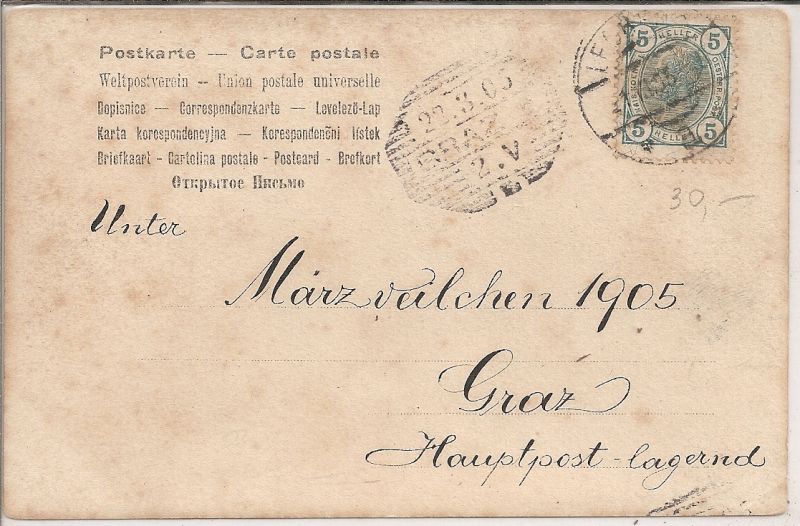 Postkarte — Carte postale
Weltpostverein — Union postale universelle
Dopisnice — Correspondenzkarte — Levelező-Lap
Karta korespondencyjna — Korespondenčni lístek
Briefkaart — Cartolina postale — Postcard — Brefkort
Открытое Письмо
5 HELLER 5
5 HELLER 5
GRAZ
2.V
30,—
Unter
Märzveilchen 1905
Graz
Hauptpost-lagernd